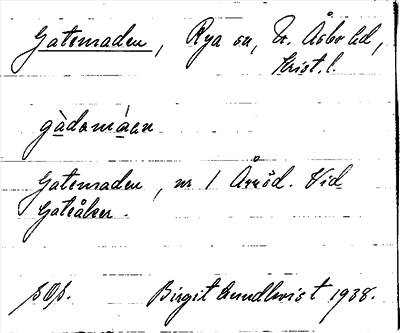 Gatemaden, Rya sn, N. Åsbo hd,
Krist. l.
gàdemáen
Gatemaden, nr 1 Årröd. Vid
Gateåker.
Birgit Lundkvist 1938.